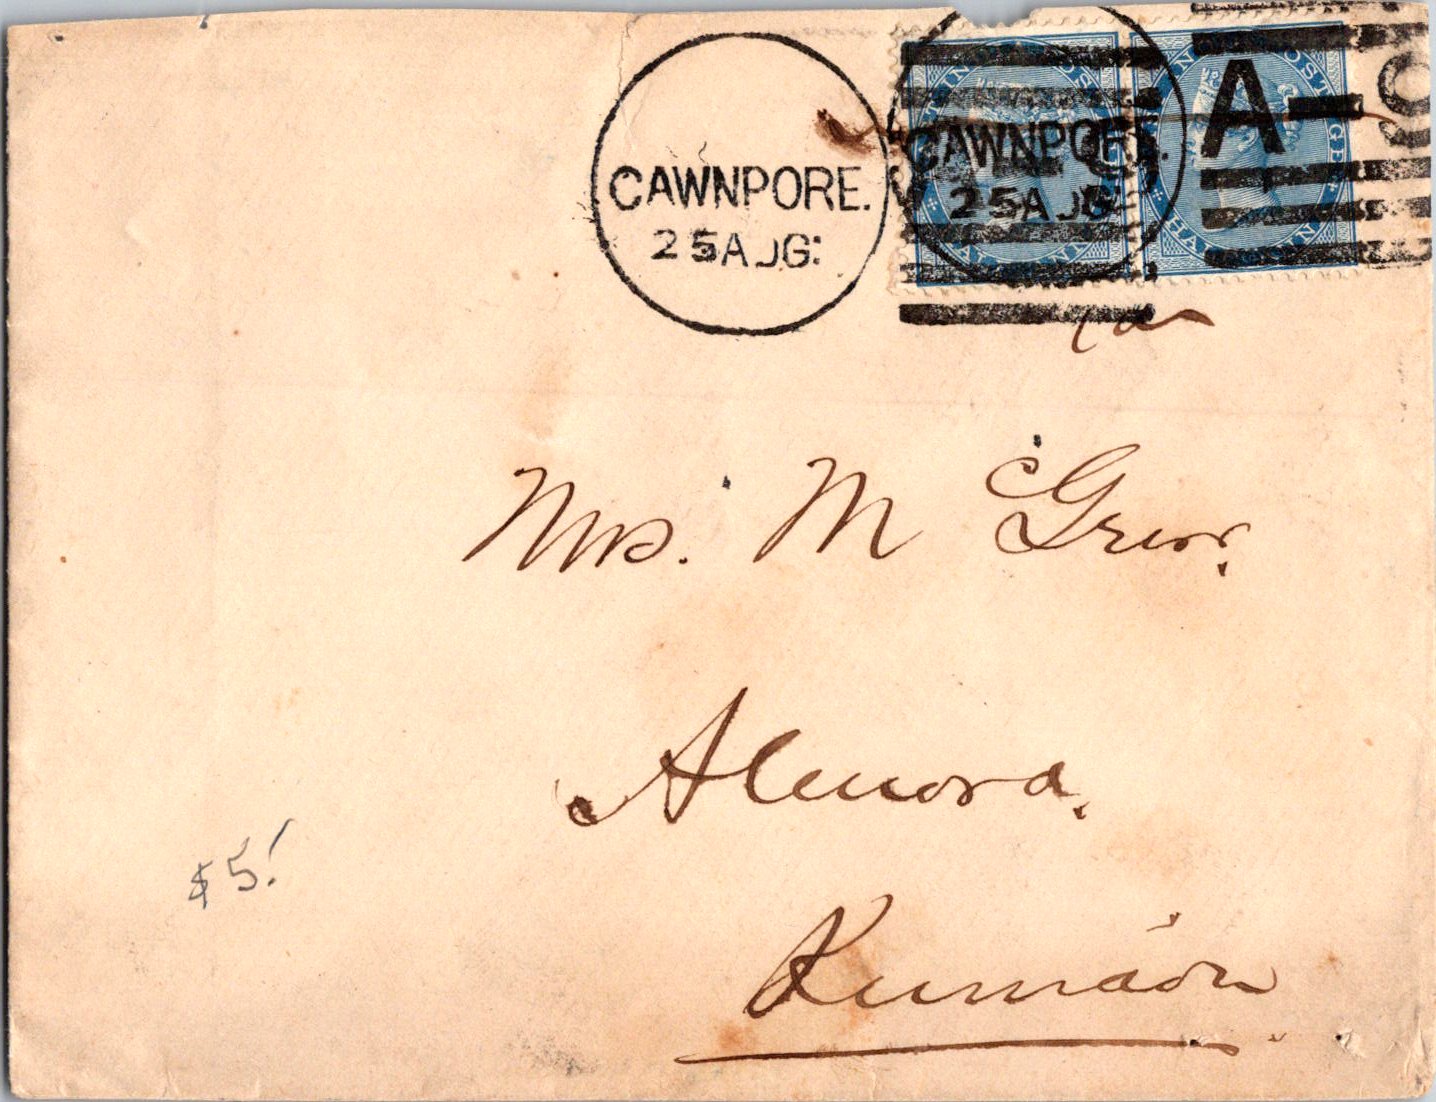 CAWNPORE.
25 AUG:
CAWNPORE.
25 AUG
A-
Mrs. McGrew.
Almora.
Kumáon
$5!